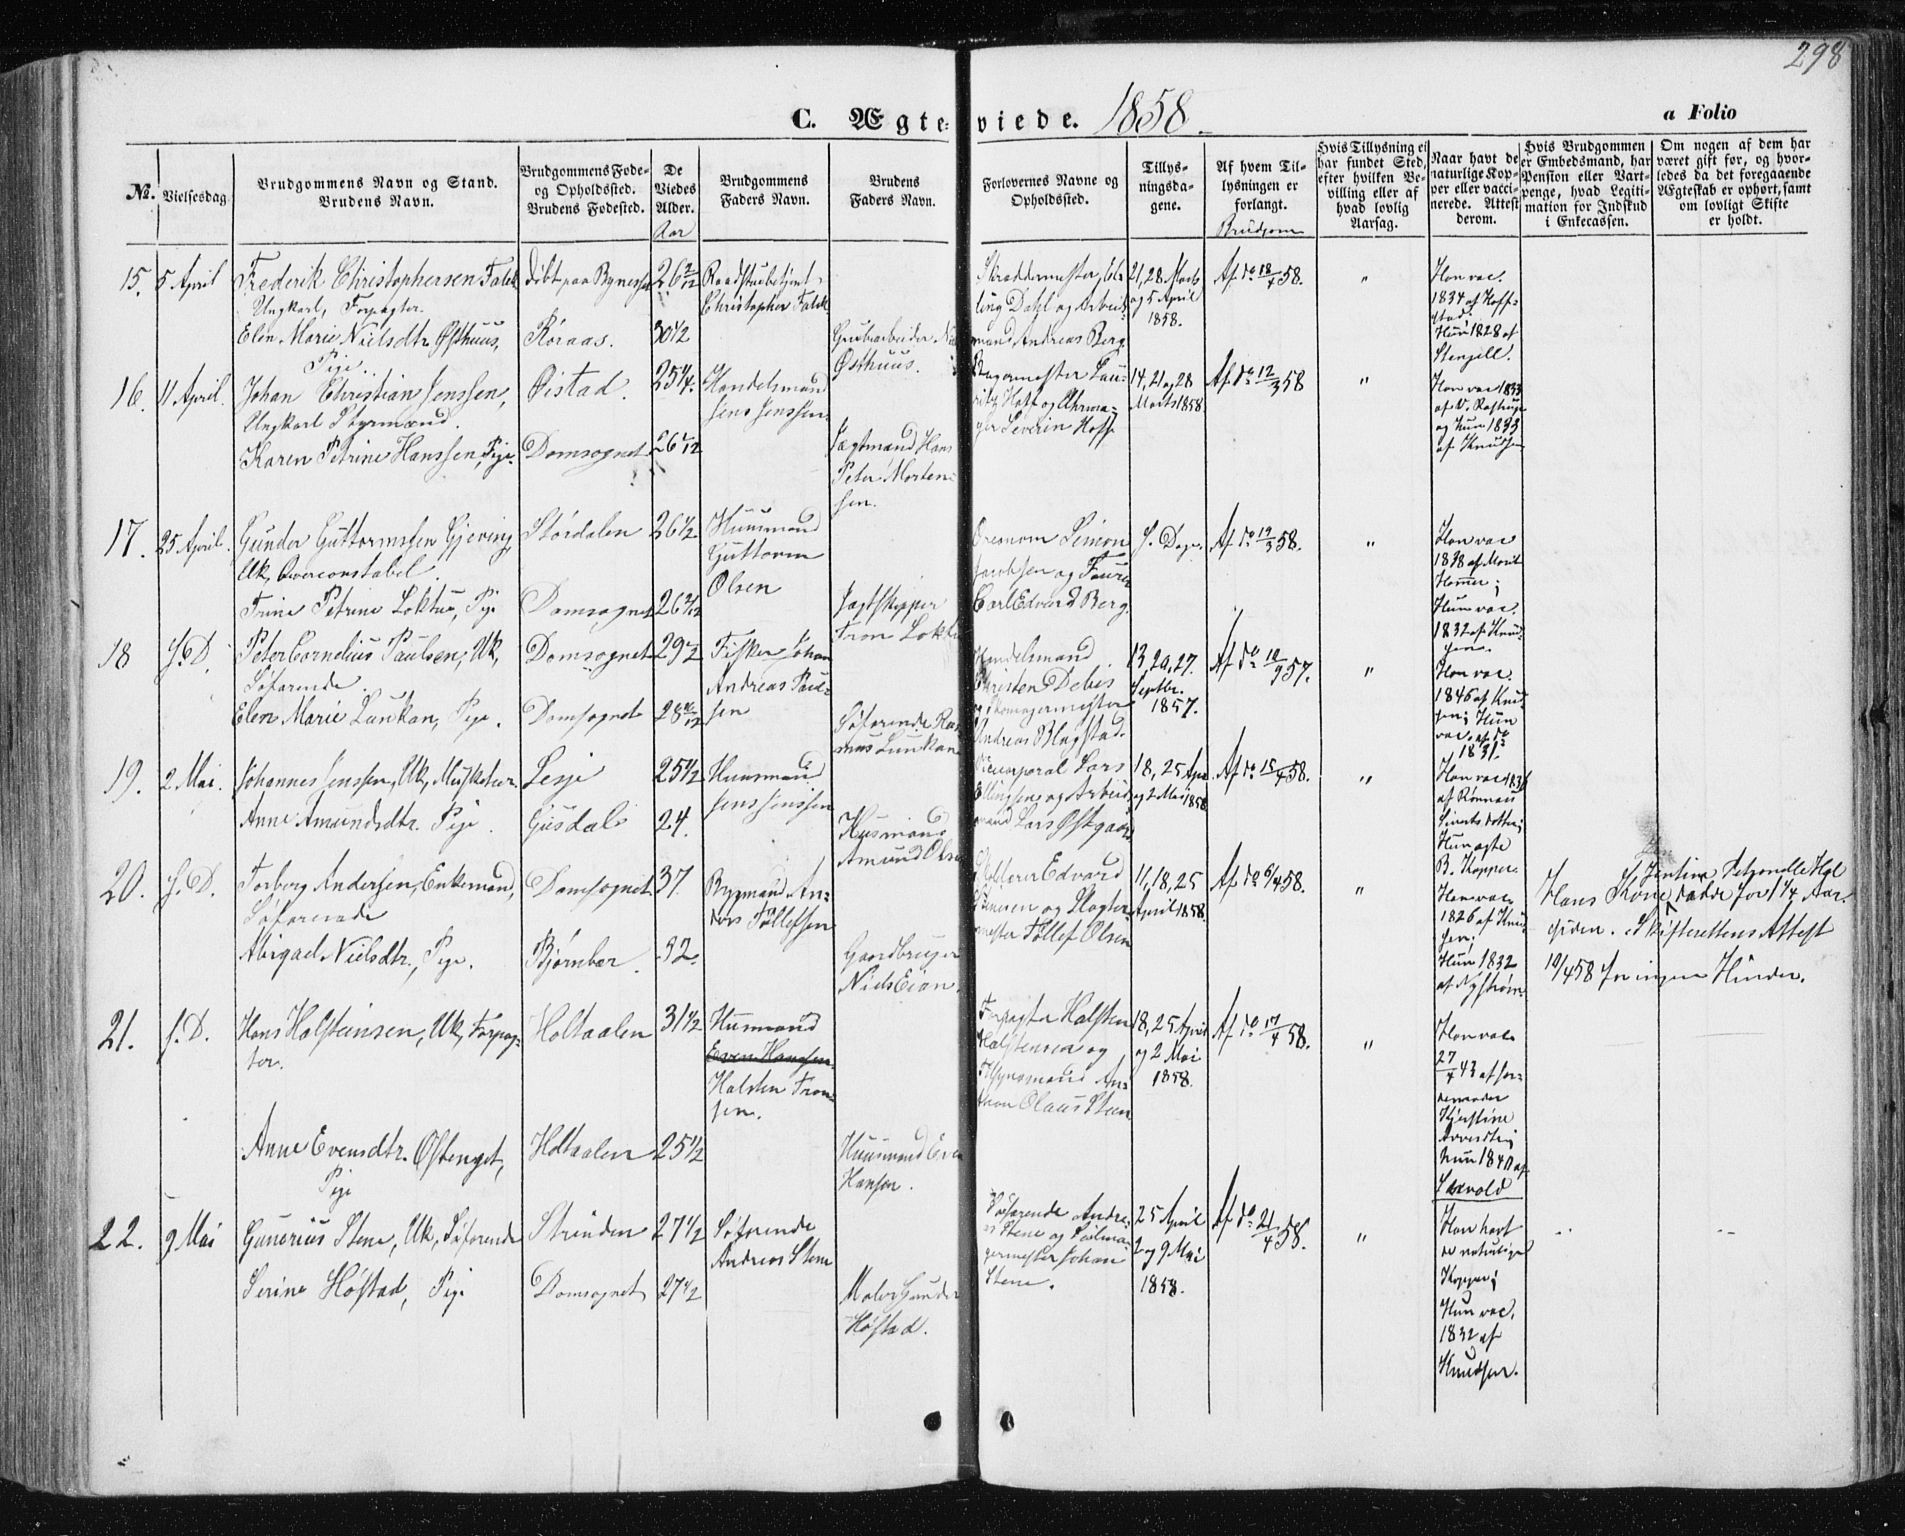 298
C. Ægteviede. 1858
a Folio
No.
Vielsesdag
Brudgommens Navn og Stand.
Brudens Navn.
Brudgommens Føde-
og Opholdssted.
Brudens Fødested.
De
Viedes
Alder.
Aar
Brudgommens
Faders Navn.
Brudens
Faders Navn.
Forlovernes Navne og
Opholdssted.
Tillys-
ningsda-
gene.
Af hvem Til-
lysningen er
forlangt.
Brudgom
Hvis Tillysning ei
har fundet Sted,
efter hvilken Be-
villing eller af
hvad lovlig
Aarsag.
Naar havt de
naturlige Kop-
per eller vacci-
nerede. Attest
derom.
Hvis Brudgommen
er Embedsmand, har
Pension eller Vart-
penge, hvad Legiti-
mation for Indskud
i Enkecassen.
Om nogen af dem har
været gift før, og hvor-
ledes da det foregaaende
Ægteskab er ophørt, samt
om lovligt Skifte
er holdt.
15. 5 April
Frederik Christophersen Falck
Ungkarl, Forpagter.
Elen Marie Nielsdtr Østhuus,
Pige.
døbt paa Bynesset
Røraas.
26 2/12
30 1/2
Raadstuebetjent
Christopher Falck
Grubearbeider
Østhuus.
Skræddermester
Dahl og Arbeids-
mand Andreas Berg.
21, 28 Marts
og 5 April
1858.
Af do 18/4 58.
"
Han vac.
1834 af Hoff-
stad.
Hun 1828 af
16. 11 April.
Johan Christian Jenssen,
Ungkarl Styrmand.
Karen Petrine Hanssen, Pige.
Øistad.
Domsognet
25 1/4.
26 1/12
Handelsmand
Jens Jenssen
Jægtmand Hans
Peter Morten-
sen.
Bagermester Lau-
ritz Hoff og Uhrma-
ger Severin Hoff
14, 21 og 28
Marts 1858.
Af do 12/3 58
"
Han vac 1833
og Hun 1833
af Knudsen
17. 25 April.
Gunder Guttormssen Gjeving,
Uk, Overconstabel.
Trine Petrine Loktu, Pige
Stördalen
Domsognet
26 1/2.
26 3/12
Huusmand
Guttorm
Olsen
Jagtskipper
Tron Loktu
Simon
Jacobsen og
Carl Edvard Berg.
S. Dage.
Af do 12/3 58.
"
Han vac
1838 af
Hommer;
Hun vac.
1832 af Knud-
sen.
18 S. D.
Peter Cornelius Paulsen, Uk,
Søfarende.
Elen Marie Lunkan, Pige.
Domsognet
Domsognet
29 1/2
28 10/12
Fisker Johan
Andreas Paul-
sen
Søfarende Ras-
mus Lunkan
Handelsmand
Christen Debes
og Skomagermester
Andreas Blegstad.
13, 20, 27.
Septbr.
1857.
Af do 10/9 57.
"
Han vac.
1846 af Knud-
sen; Hun
vac. af do
1831.
19. 2 Mai.
Johannes Jenssen, Uk, Musketeer.
Anne Amundsdtr. Pige.
Lesje
Gusdal
25 1/2
24.
Huusmand
Jens Jenssen
Husmand
Amund Olsen
Vicecorporal Lars
Ellingsen og Arbeids-
mand Lars Østgaard
18, 25 Apr
og 2 Mai 1858
Af do 15/4 58.
"
Han vac 1836
af Rønnau
Siverts datter;
Hun ægte
B. Kopper.
20. S. D.
Torberg Andersen, Enkemand,
Søfarende
Abigael Nielsdtr., Pige.
Domsognet
Bjørnber.
37.
32.
Bygmand An-
ders Tollefsen
Gaardbruger
Niels Eian.
Edvard
og Slagter-
mester Tollef Olsen
11, 18, 25
April 1858.
Af do 6/4 58.
"
Han vac.
1826 af Knud-
sen;
Hun 1832
af Nystrøm
Hans Kone døde for 1 1/4 Aar
siden. Skifterettens Attest
10/4 58 for ingen Hinder.
21. S. D.
Hans Halsteinsen, Uk, Forpag-
ter.
Anne Evensdtr. Østenget,
Pige
Holtaalen
Holtaalen
31 1/2
25 1/2
Husmand
Even Hansen
Halsten Tron-
sen.
Huusmand Even
Hansen.
Forpagter Halsten
Halstensen og
Olaus Steen
18, 25 April
og 2 Mai
1858.
Af do 17/4 58.
"
Han vac
27/4 43 af Jor-
demoder
Kjerstine
hun 1840 af
Saxvold
22. 9 Mai
Gunerius Stene, Uk, Søfarende
Serine Høstad, Pige
Strinden
Domsognet
27 1/2
27 1/2
Søfarende
Andreas Stene
Maler Gunder
Høstad.
Søfarende Andre-
as Stene og Seilma-
germester Johan
Stene.
25 April
2 og 9 Mai
1858.
Af do 21/4 58.
"
Han havt
de naturlige
Kopper;
Hun vac.
1832 af
Knudsen.